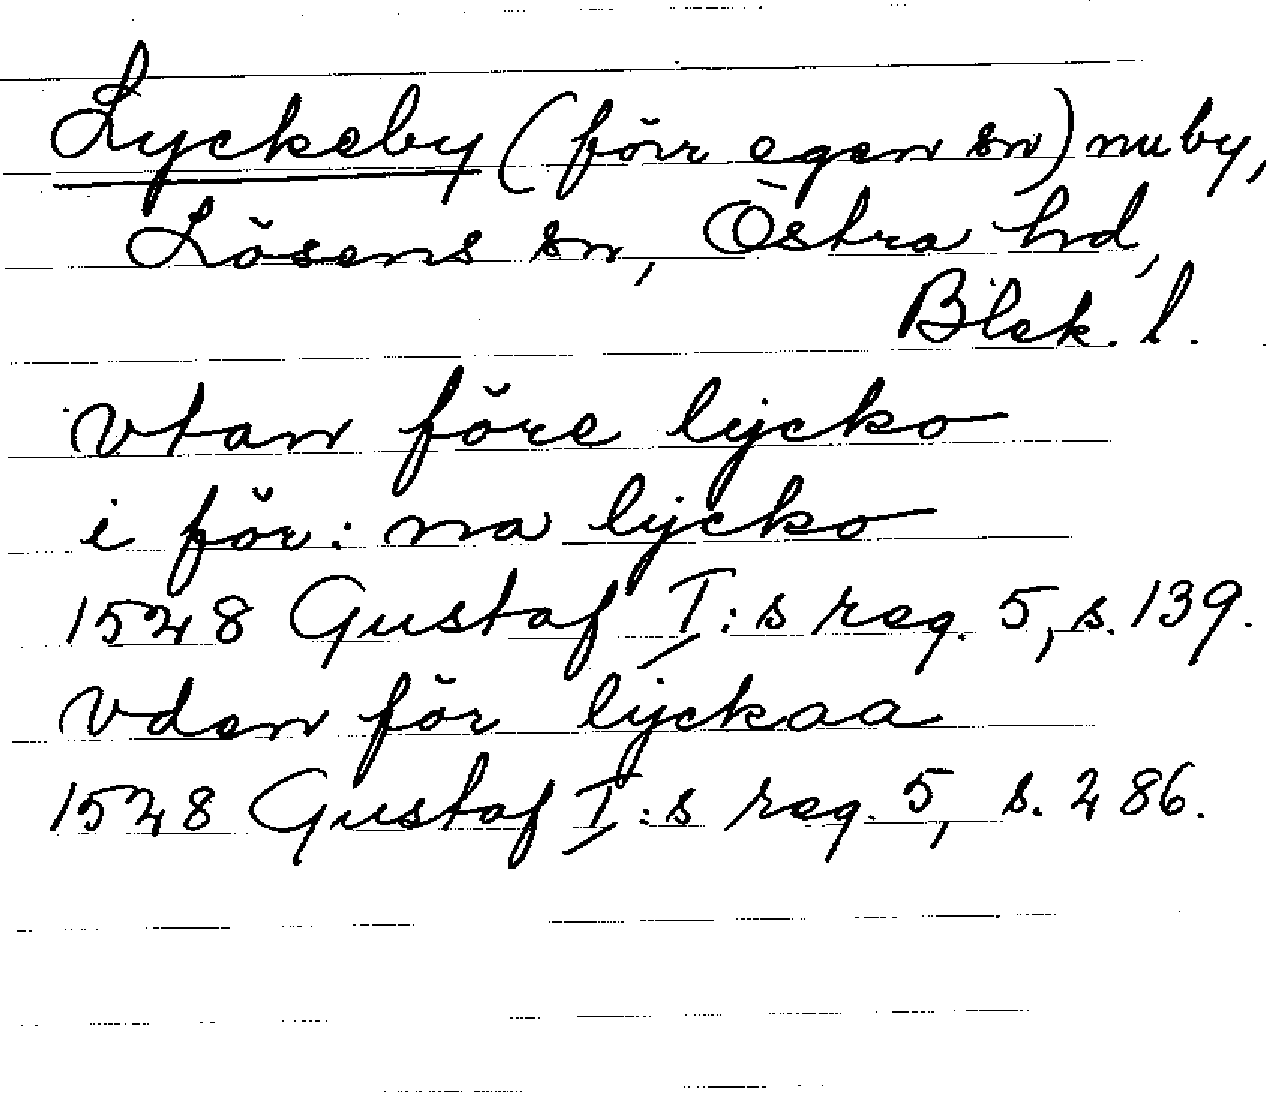 Lyckeby (förr egen sn) nu by,
Lösens sn, Östra hd,
Blek. l.
vtan före lycko
i för: na lycko
1528 Gustaf I:s reg. 5, s. 139.
vden för lyckaa
1528 Gustaf I:s reg. 5, s. 286.